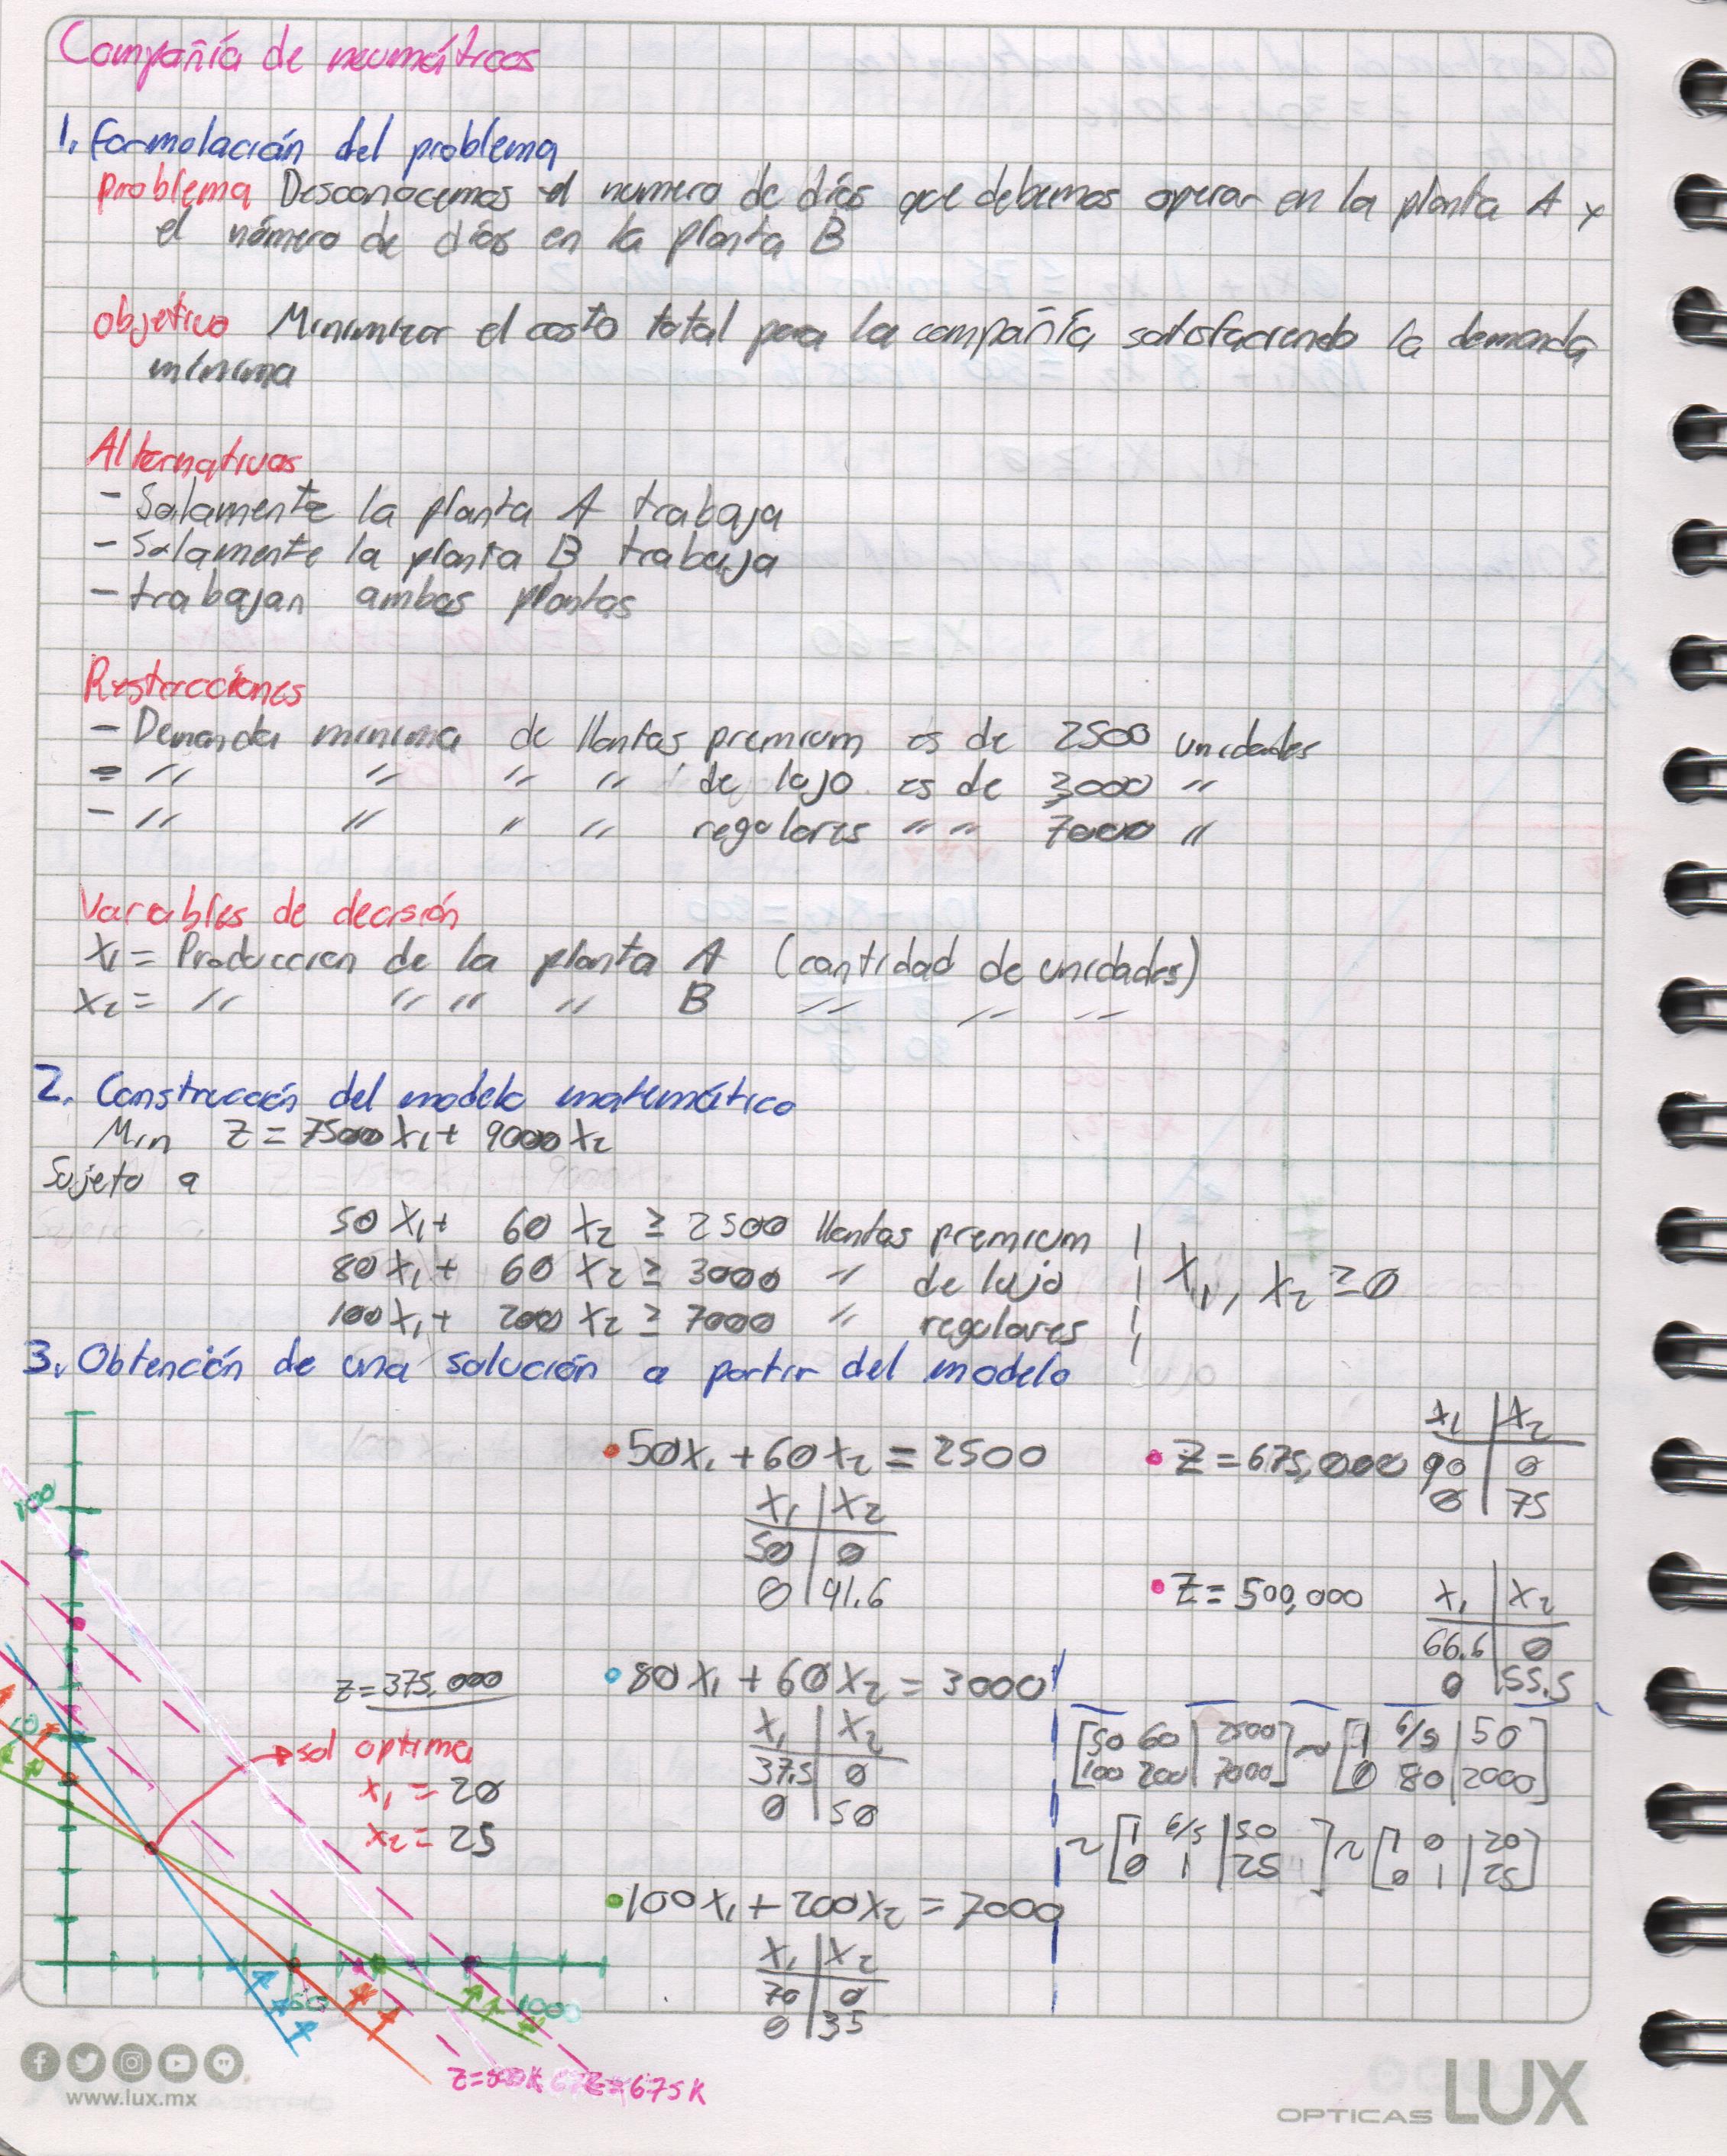 Compañía de neumáticos
1. Formulación del problema
Problema Desconocemos el numero de días que debemos operar en la planta A y
el número de días en la planta B
Objetivo Minimizar el costo total para la compañía satisfaciendo la demanda
mínima
Alternativas
- Solamente la planta A trabaja
- Solamente la planta B trabaja
- trabajan ambas plantas
Restricciones
- Demanda minima de llantas premium es de 2500 unidades
- " " " " de lujo es de 3000 "
- " " " " regulares " " 7000 "
Variables de decisión
X₁ = Produccion de la planta A (cantidad de unidades)
X₂ = " " " " B " " "
2. Construcción del modelo matemático
Min Z = 7500X₁ + 9000X₂
Sujeto a
50X₁ + 60X₂ ≥ 2500 llantas premium
80X₁ + 60X₂ ≥ 3000 " de lujo
100X₁ + 200X₂ ≥ 7000 " regulares
X₁, X₂ ≥ 0
3. Obtención de una solución a partir del modelo
100
50
50
1000
Z = 375,000
sol optima
X₁ = 20
X₂ = 25
Z=500K
Z=675K
• 50X₁ + 60X₂ = 2500
X₁ | X₂
50 | 0
0 | 41.6
• 80X₁ + 60X₂ = 3000
X₁ | X₂
37.5 | 0
0 | 50
• 100X₁ + 200X₂ = 7000
X₁ | X₂
70 | 0
0 | 35
• Z = 675,000
X₁ | X₂
90 | 0
0 | 75
• Z = 500,000
X₁ | X₂
66.6 | 0
0 | 55.5
[50 60 | 2500] ~ [1 6/5 | 50]
[100 200 | 7000] [0 80 | 2000]
~ [1 6/5 | 50] ~ [1 0 | 20]
[0 1 | 25] [0 1 | 25]
www.lux.mx
OPTICAS LUX